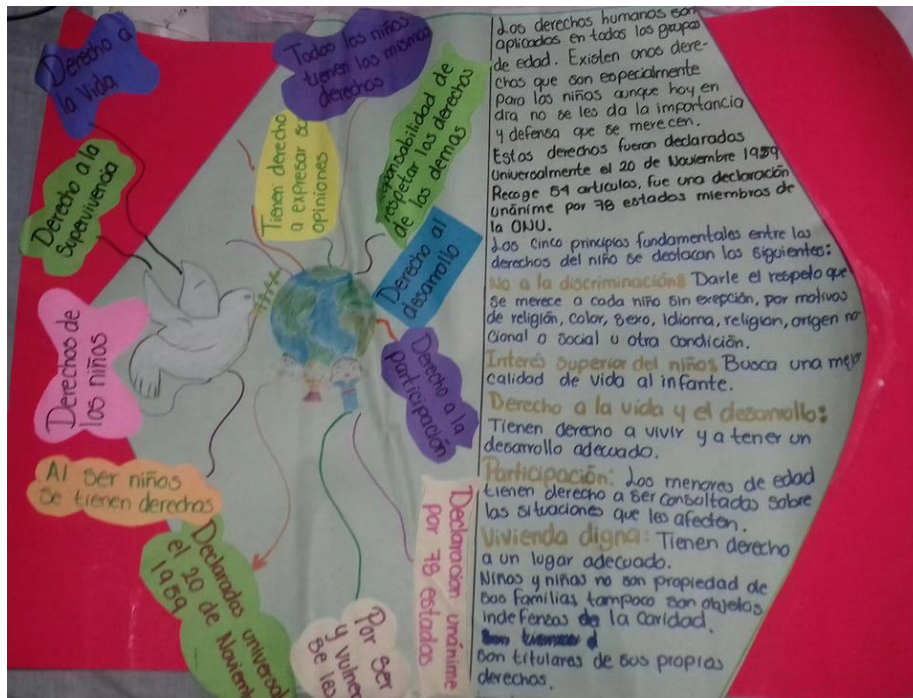 Derecho a
la Vida
Derecho a la
supervivencia
Derechos de
los niños
Al ser niños
se tienen derechos
Declarados
el 20 de
1959
Por ser
y
se les
Declaración unánime
por 78 estados
Todos los niños
tienen los mismos
derechos
Tienen derecho
a expresar
opiniones
respetar los derechos
de los demas
Derecho al
desarrollo
Derecho a la
participación
Los derechos humanos son
aplicados en todos los grupos
de edad. Existen unos dere-
chos que son especialmente
para los niños aunque hoy en
dia no se les da la importancia
y defensa que se merecen.
Estos derechos fueron declarados
Universalmente el 20 de Noviembre 1959
Recoge 54 articulos, fue una declaración
unánime por 78 estados miembros de
la ONU.
Los cinco principios fundamentales entre los
derechos del niño se destacan los siguientes:
No a la discriminación: Darle el respeto que
se merece a cada niño sin exepción, por motivos
de religión, color, sexo, idioma, religion, origen na-
cional o social u otra condición.
Interés superior del niño: Busca una mejor
calidad de vida al infante.
Derecho a la vida y el desarrollo:
Tienen derecho a vivir y a tener un
desarrollo adecuado.
Participación: Los menores de edad
tienen derecho a ser consultados sobre
las situaciones que les afecten.
Vivienda digna: Tienen derecho
a un lugar adecuado.
Niños y niñas no son propiedad de
sus familias tampoco son objetos
indefensos de la caridad.
son titulares de sus propios
derechos.